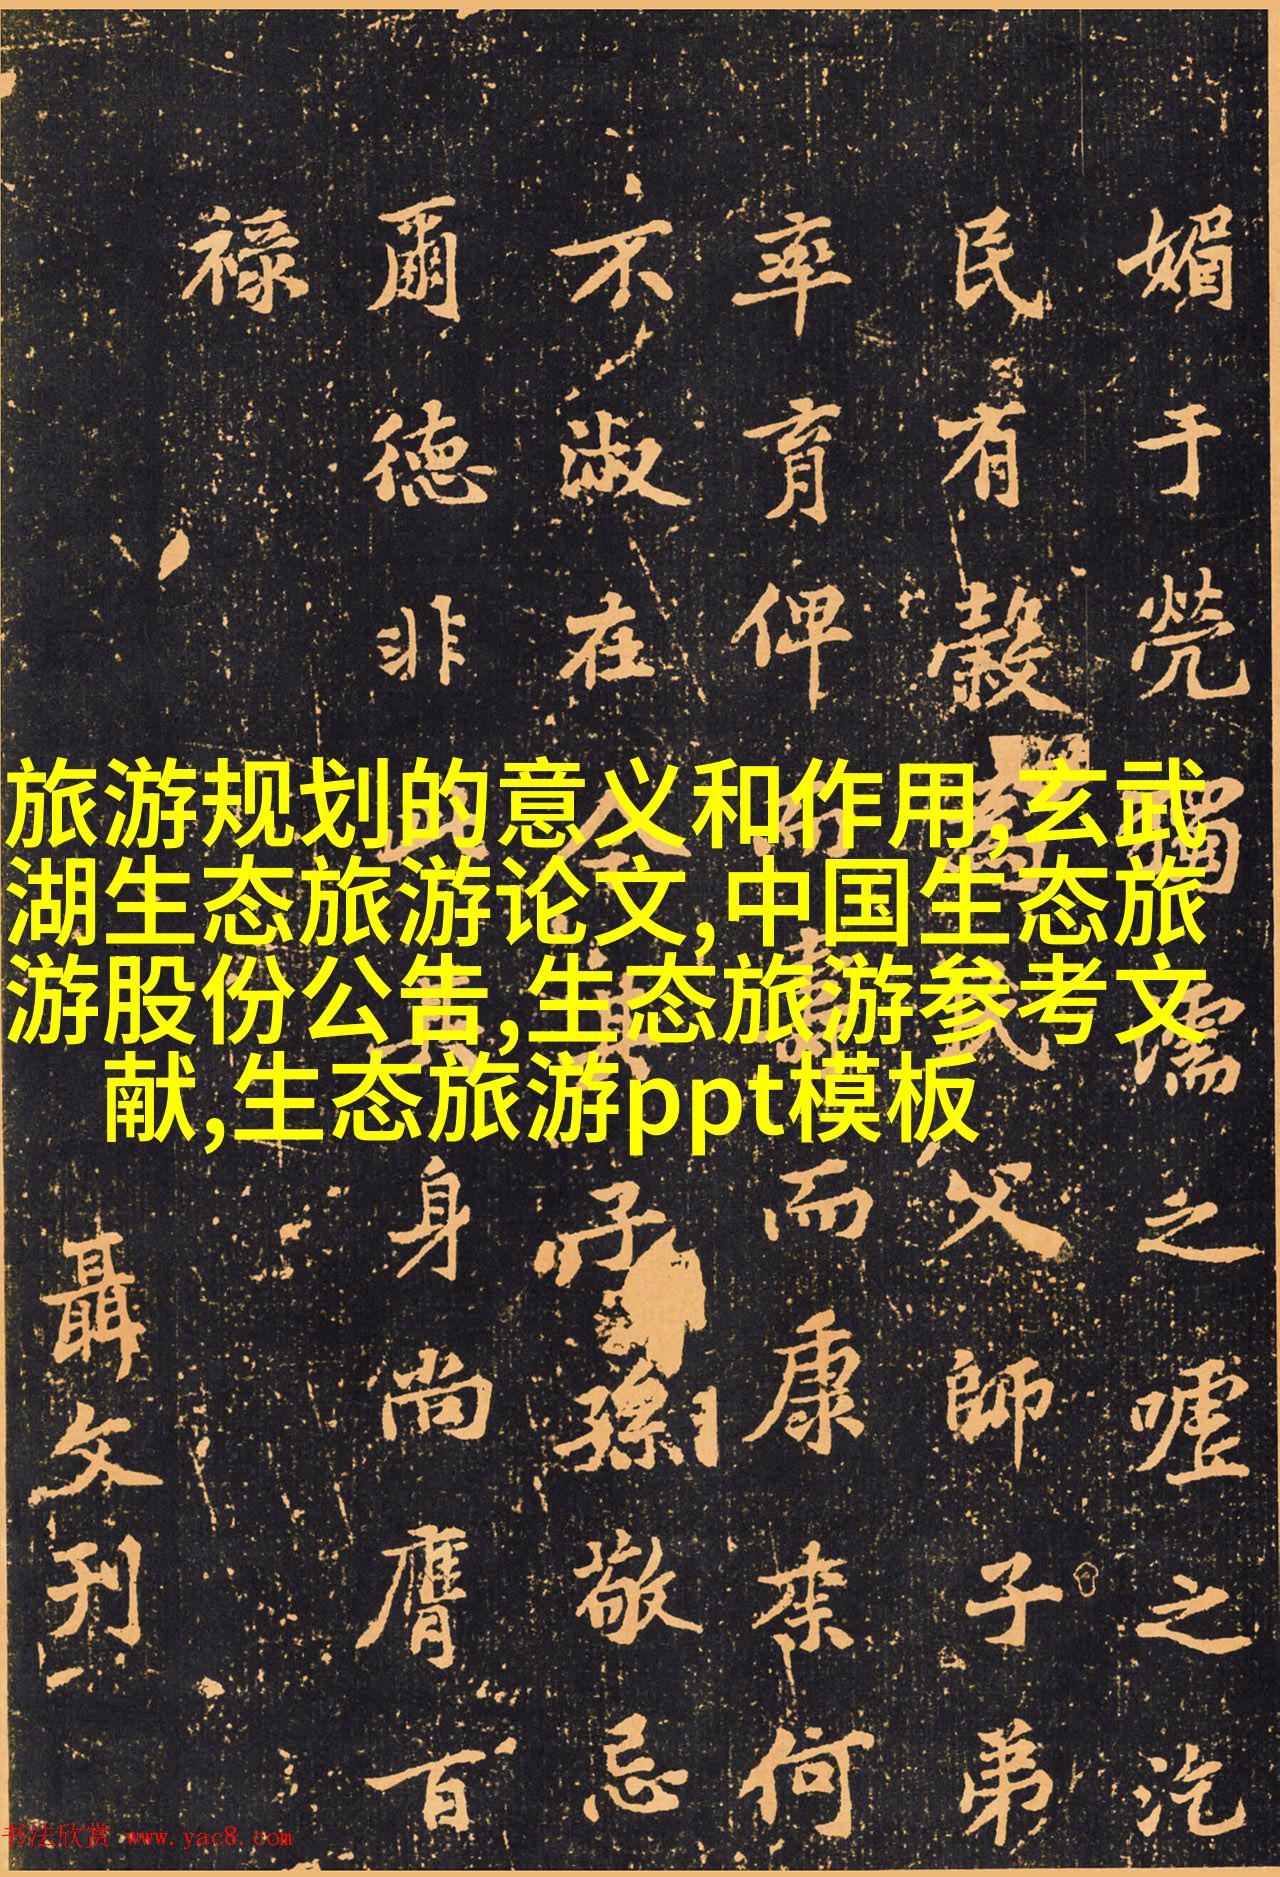 媚于焭獨濡之嘘之汔
民有穀父師子弟
率育俾而康来何
不淑在子孫敬忌
爾德非身尚膺百
禄
聶文刊
旅游规划的意义和作用,玄武
湖生态旅游论文,中国生态旅
游股份公告,生态旅游参考文
献,生态旅游ppt模板
书法欣赏 www.yac8.com